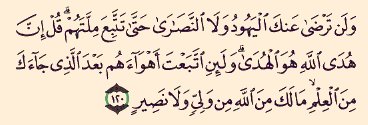 وَلَن تَرْضَىٰ عَنكَ ٱلْيَهُودُ وَلَا ٱلنَّصَٰرَىٰ حَتَّىٰ تَتَّبِعَ مِلَّتَهُمْ ۗ قُلْ إِنَّ
هُدَى ٱللَّهِ هُوَ ٱلْهُدَىٰ ۗ وَلَئِنِ ٱتَّبَعْتَ أَهْوَآءَهُم بَعْدَ ٱلَّذِى جَآءَكَ
مِنَ ٱلْعِلْمِ ۙ مَا لَكَ مِنَ ٱللَّهِ مِن وَلِىٍّ وَلَا نَصِيرٍ ١٢٠